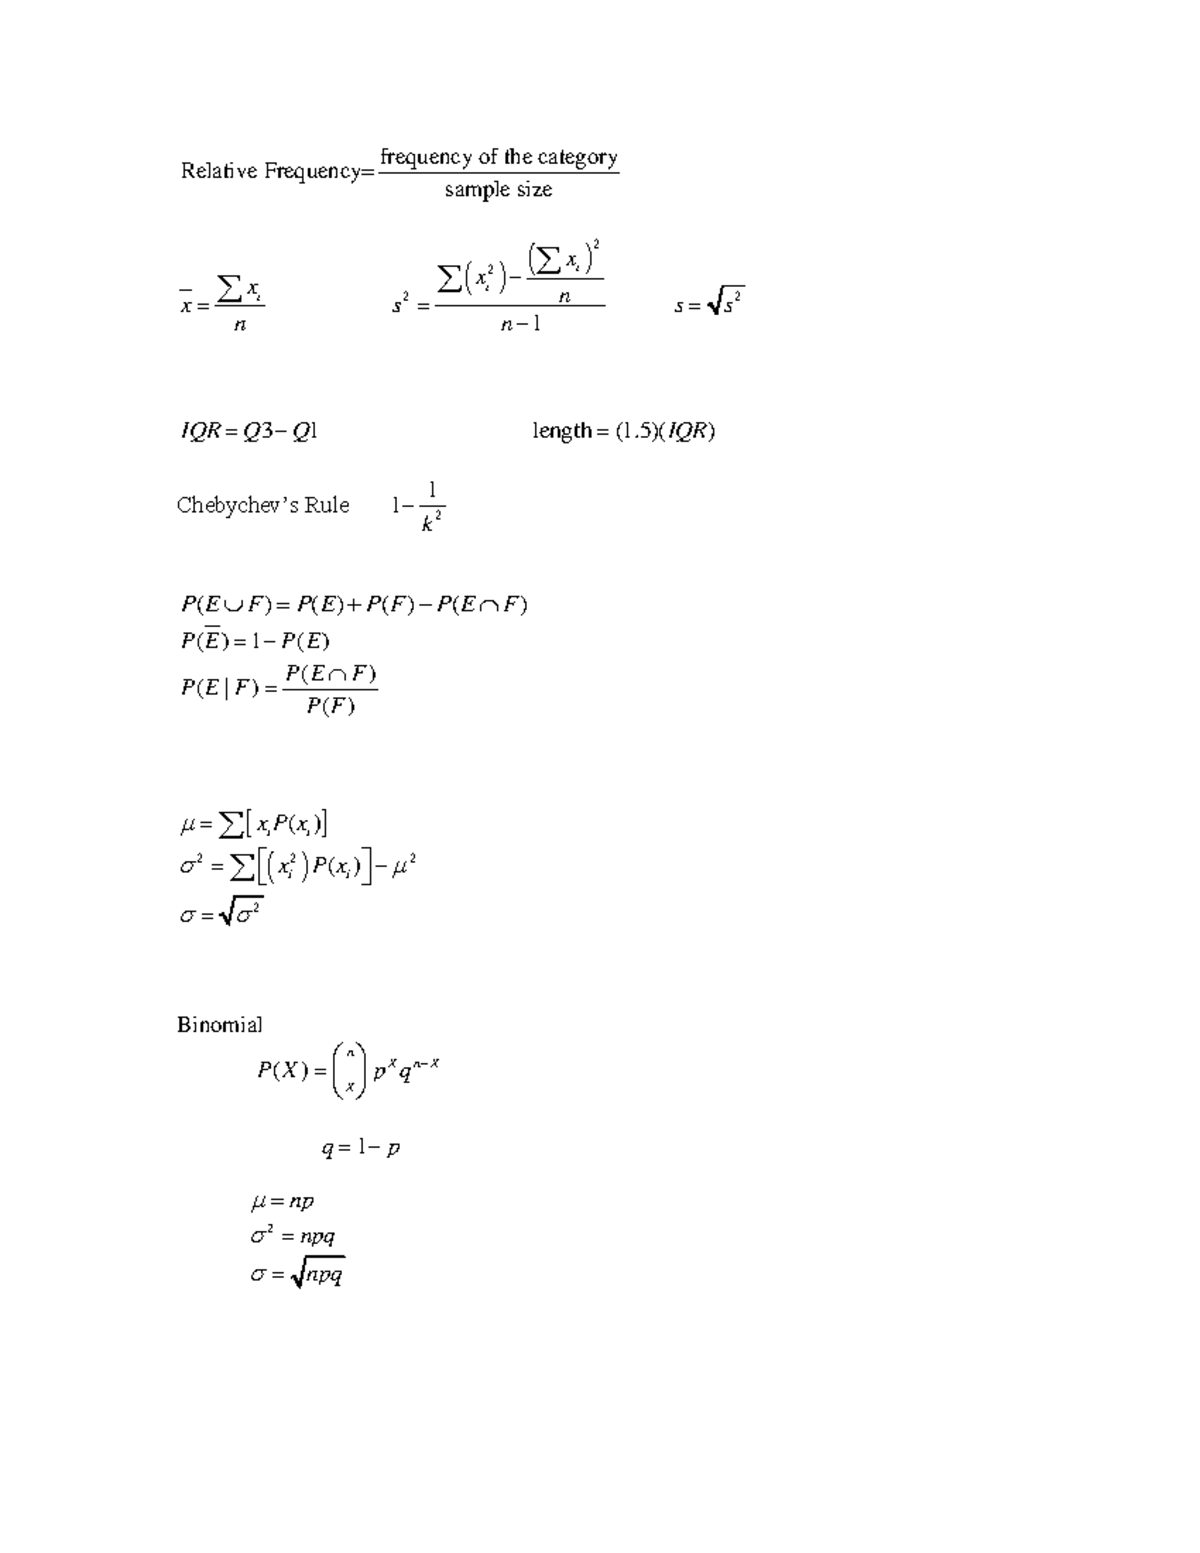 Relative Frequency= frequency of the category / sample size
x̄ = ∑xᵢ / n    s² = (∑(xᵢ²) − (∑xᵢ)² / n) / (n − 1)    s = √s²
IQR = Q3 − Q1    length = (1.5)(IQR)
Chebychev’s Rule    1 − 1 / k²
P(E ∪ F) = P(E) + P(F) − P(E ∩ F)
P(E̅) = 1 − P(E)
P(E | F) = P(E ∩ F) / P(F)
μ = ∑[xᵢP(xᵢ)]
σ² = ∑[(xᵢ²)P(xᵢ)] − μ²
σ = √σ²
Binomial
P(X) = (n X) p^X q^(n−X)
q = 1 − p
μ = np
σ² = npq
σ = √npq